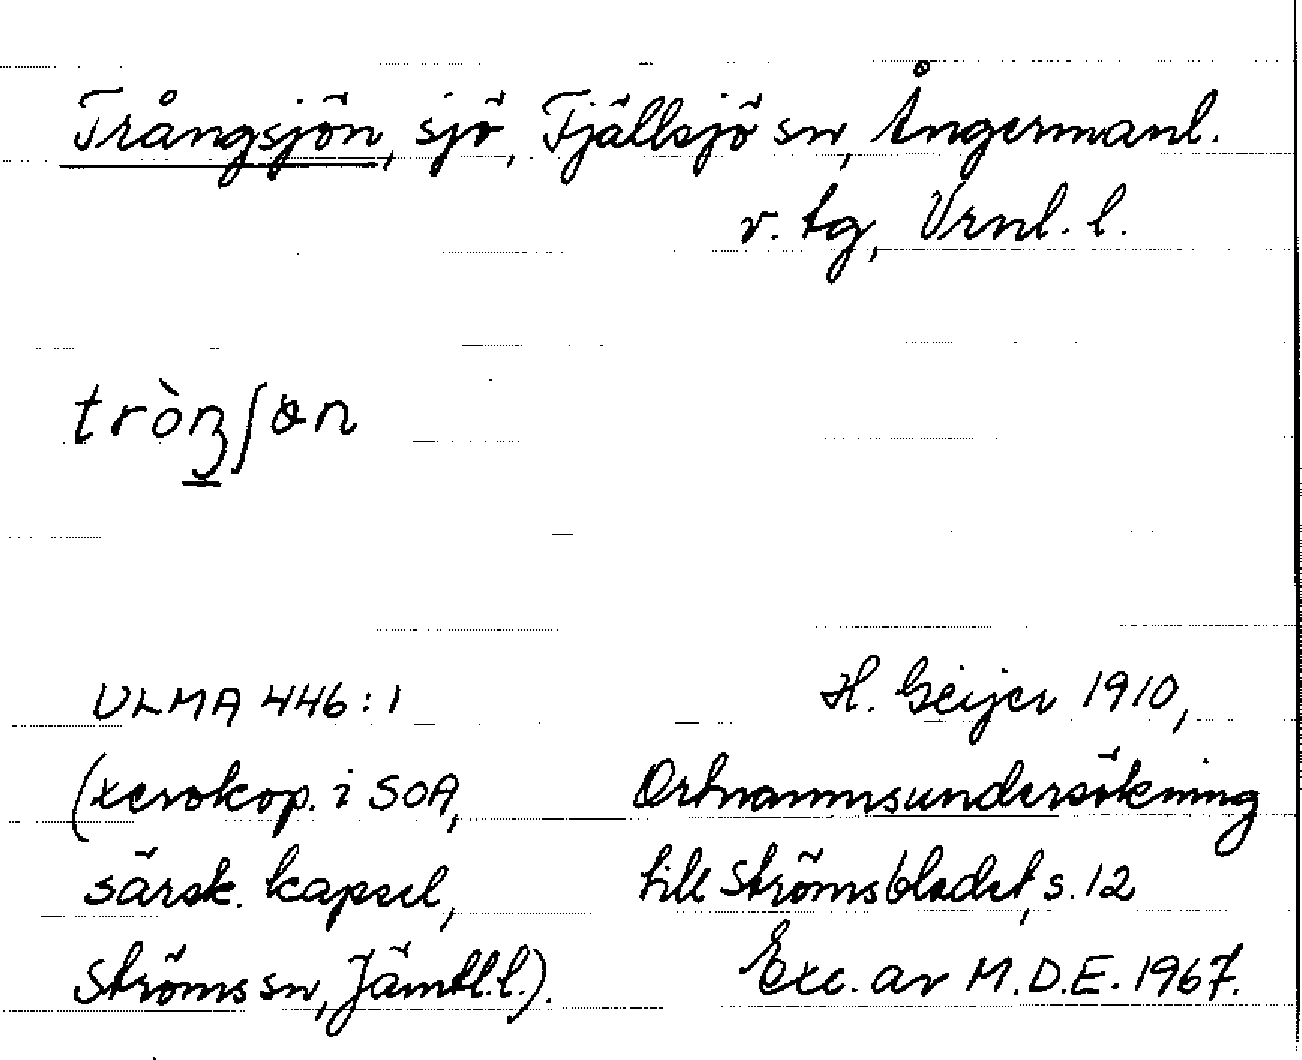 Trångsjön, sjö, Fjällsjö sn, Ångermanl.
v. tg, Vrnl. l.
tròŋʃɷn
ULMA 446:1
(xerokop. i SOA,
särsk. kapsel,
Ströms sn, Jämtl.l.).
H. Geijer 1910,
Ortnamnsundersökning
till Strömsbladet, s. 12
Exc. av M.D.E. 1967.